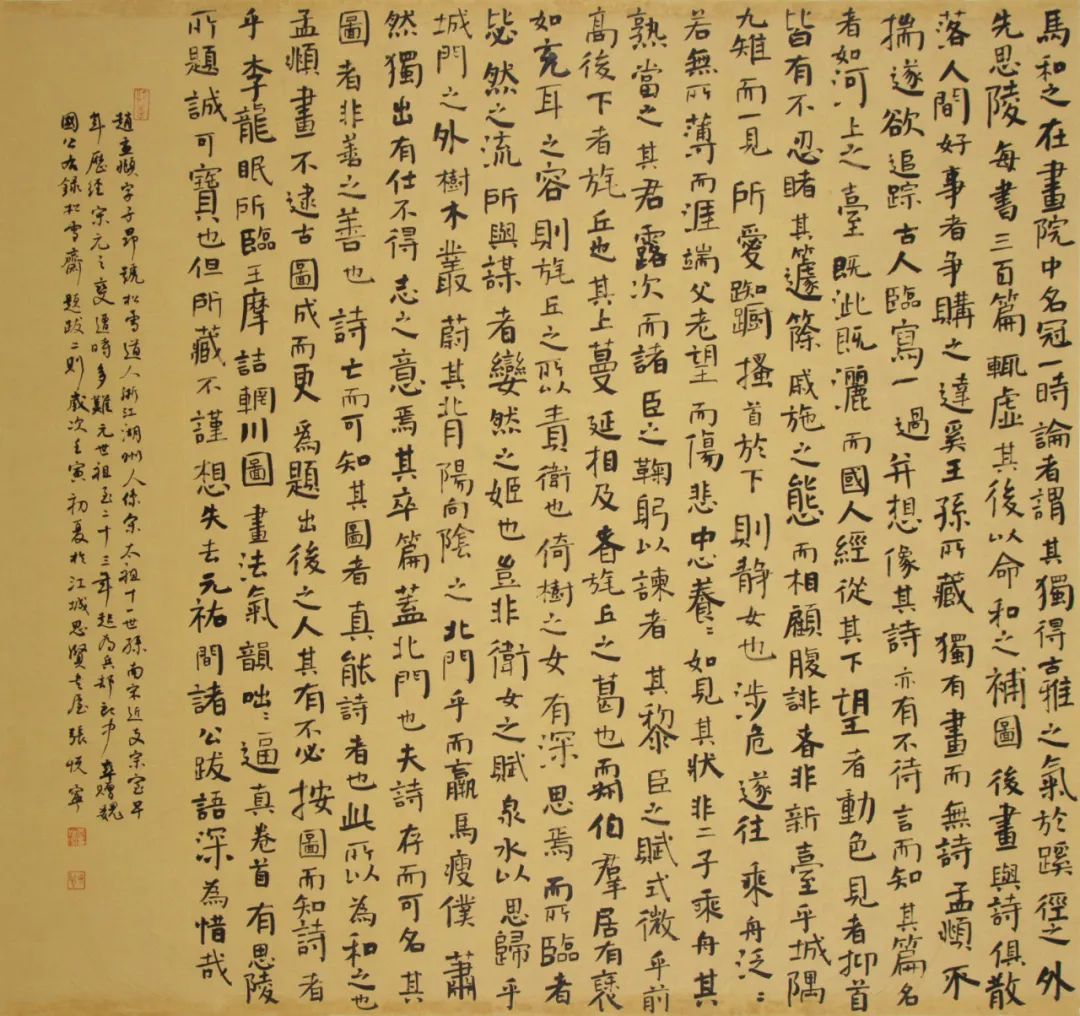 馬和之在畫院中名冠一時論者謂其獨得古雅之氣於蹊徑之外
先思陵每書三百篇輒虛其後以命和之補圖後畫與詩俱散
落人間好事者爭購之達奚王孫所藏獨有畫而無詩孟頫不
揣遂欲追踪古人臨寫一過并想像其詩亦有不待言而知其篇名
者如河上之臺既泚既灑而國人經從其下望者動色見者抑首
皆有不忍睹其籧篨戚施之態而相顧腹誹者非新臺乎城隅
九雉而一見所愛踟躕搔首於下則靜女也涉危遂往乘舟泛〻
若無所薄而涯端父老望而傷悲中心養〻如見其狀非二子乘舟其
熟當之其君露次而諸臣之鞠躬以諫者其黎臣之賦式微乎前
高後下者旄丘也其上蔓延相及者旄丘之葛也而叔伯羣居有褎
如充耳之容則旄丘之所以責衛也倚樹之女有深思焉而所臨者
毖然之流所與謀者孌然之姬也豈非衛女之賦泉水以思歸乎
城門之外樹木叢蔚其北背陽向陰之北門乎而羸馬瘦僕蕭
然獨出有仕不得志之意焉其卒篇蓋北門也夫詩存而可名其
圖者非善之善也詩亡而可知其圖者真能詩者也此所以為和之也
孟頫畫不逮古圖成而更為題出後之人其有不必按圖而知詩者
乎李龍眠所臨王摩詰輞川圖畫法氣韻咄〻逼真卷首有思陵
所題誠可寶也但所藏不謹想失去元祐間諸公跋語深為惜哉
趙孟頫字子昂號松雪道人浙江湖州人係宋太祖十一世孫南宋近支宗室早
年歷經宋元之變遭時多難元世祖至二十三年起為兵部郎中卒贈魏
國公右錄松雪齋題跋二則歲次壬寅初夏於江城思賢老屋張悅寧